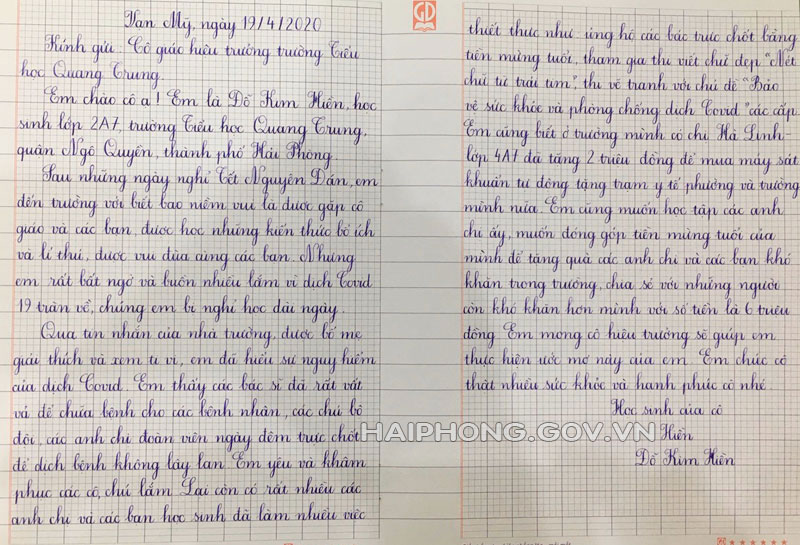 Vạn Mỹ, ngày 19/4/2020
Kính gửi: Cô giáo hiệu trưởng trường Tiểu
học Quang Trung.
Em chào cô ạ! Em là Đỗ Kim Hiền, học
sinh lớp 2A7, trường Tiểu học Quang Trung,
quận Ngô Quyền, thành phố Hải Phòng.
Sau những ngày nghỉ Tết Nguyên Đán, em
đến trường với biết bao niềm vui là được gặp cô
giáo và các bạn, được học những kiến thức bổ ích
và lí thú, được vui đùa cùng các bạn. Nhưng
em rất bất ngờ và buồn nhiều lắm vì dịch Covid
19 tràn về, chúng em bị nghỉ học dài ngày.
Qua tin nhắn của nhà trường, được bố mẹ
giải thích và xem ti vi, em đã hiểu sự nguy hiểm
của dịch Covid. Em thấy các bác sĩ đã rất vất
vả để chữa bệnh cho các bệnh nhân, các chú bộ
đội, các anh chị đoàn viên ngày đêm trực chốt
để dịch bệnh không lây lan. Em yêu và khâm
phục các cô, chú lắm. Lại còn có rất nhiều các
anh chị và các bạn học sinh đã làm nhiều việc
GD
thiết thực như: ủng hộ các bác trực chốt bằng
tiền mừng tuổi, tham gia thi viết chữ đẹp "Nét
chữ từ trái tim", thi vẽ tranh với chủ đề "Bảo
vệ sức khỏe và phòng chống dịch Covid" các cấp.
Em cũng biết ở trường mình có chị Hà Linh-
lớp 4A7 đã tặng 2 triệu đồng để mua máy sát
khuẩn tự động tặng trạm y tế phường và trường
mình nữa. Em cũng muốn học tập các anh
chị ấy, muốn đóng góp tiền mừng tuổi của
mình để tặng quà các anh chị và các bạn khó
khăn trong trường, chia sẻ với những người
còn khó khăn hơn mình với số tiền là 6 triệu
đồng. Em mong cô hiệu trưởng sẽ giúp em
thực hiện ước mơ này của em. Em chúc cô
thật nhiều sức khỏe và hạnh phúc cô nhé.
Học sinh của cô
HAIPHONG.GOV.VN
Hiền
Đỗ Kim Hiền